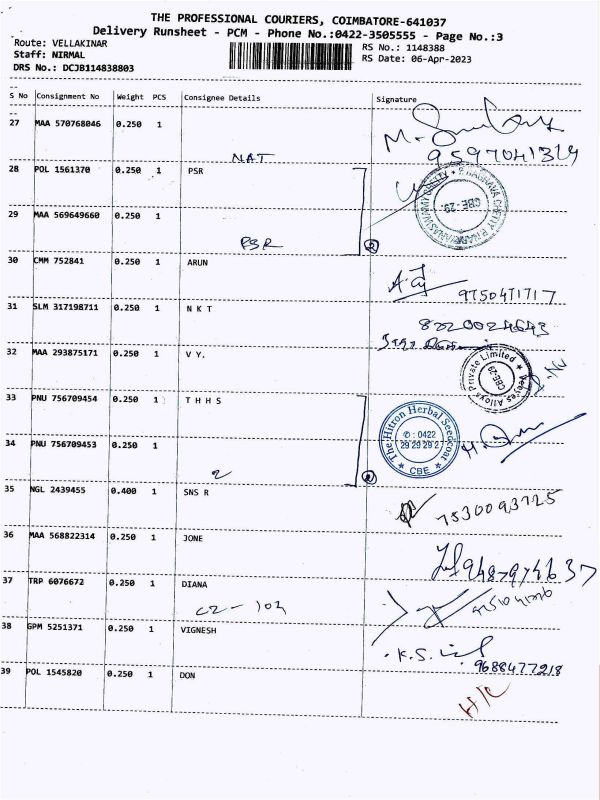 THE PROFESSIONAL COURIERS, COIMBATORE-641037
Delivery Runsheet - PCM - Phone No.:0422-3505555 - Page No.:3
Route: VELLAKINAR
RS No.: 1148388
Staff: NIRMAL
RS Date: 06-Apr-2023
DRS No.: DCJB114838803
S No Consignment No Weight PCS Consignee Details Signature
27 MAA 570768046 0.250 1
NAT
28 POL 1561370 0.250 1 PSR
CBE-29.
29 MAA 569649660 0.250 1
PSR
2
30 CMM 752841 0.250 1 ARUN
9750471717
31 SLM 317198711 0.250 1 N K T
32 MAA 293875171 0.250 1 V Y.
Veejees Alloys Private Limited
CBE-29
33 PNU 756709454 0.250 1 T H H S
The Hitron Herbal Seedcoat
✆ : 0422
CBE
34 PNU 756709453 0.250 1
2
35 NGL 2439455 0.400 1 SNS R
7530093725
36 MAA 568822314 0.250 1 JONE
37 TRP 6076672 0.250 1 DIANA
CZ - 104
38 GPM 5251371 0.250 1 VIGNESH
K.S.
9688477218
39 POL 1545820 0.250 1 DON